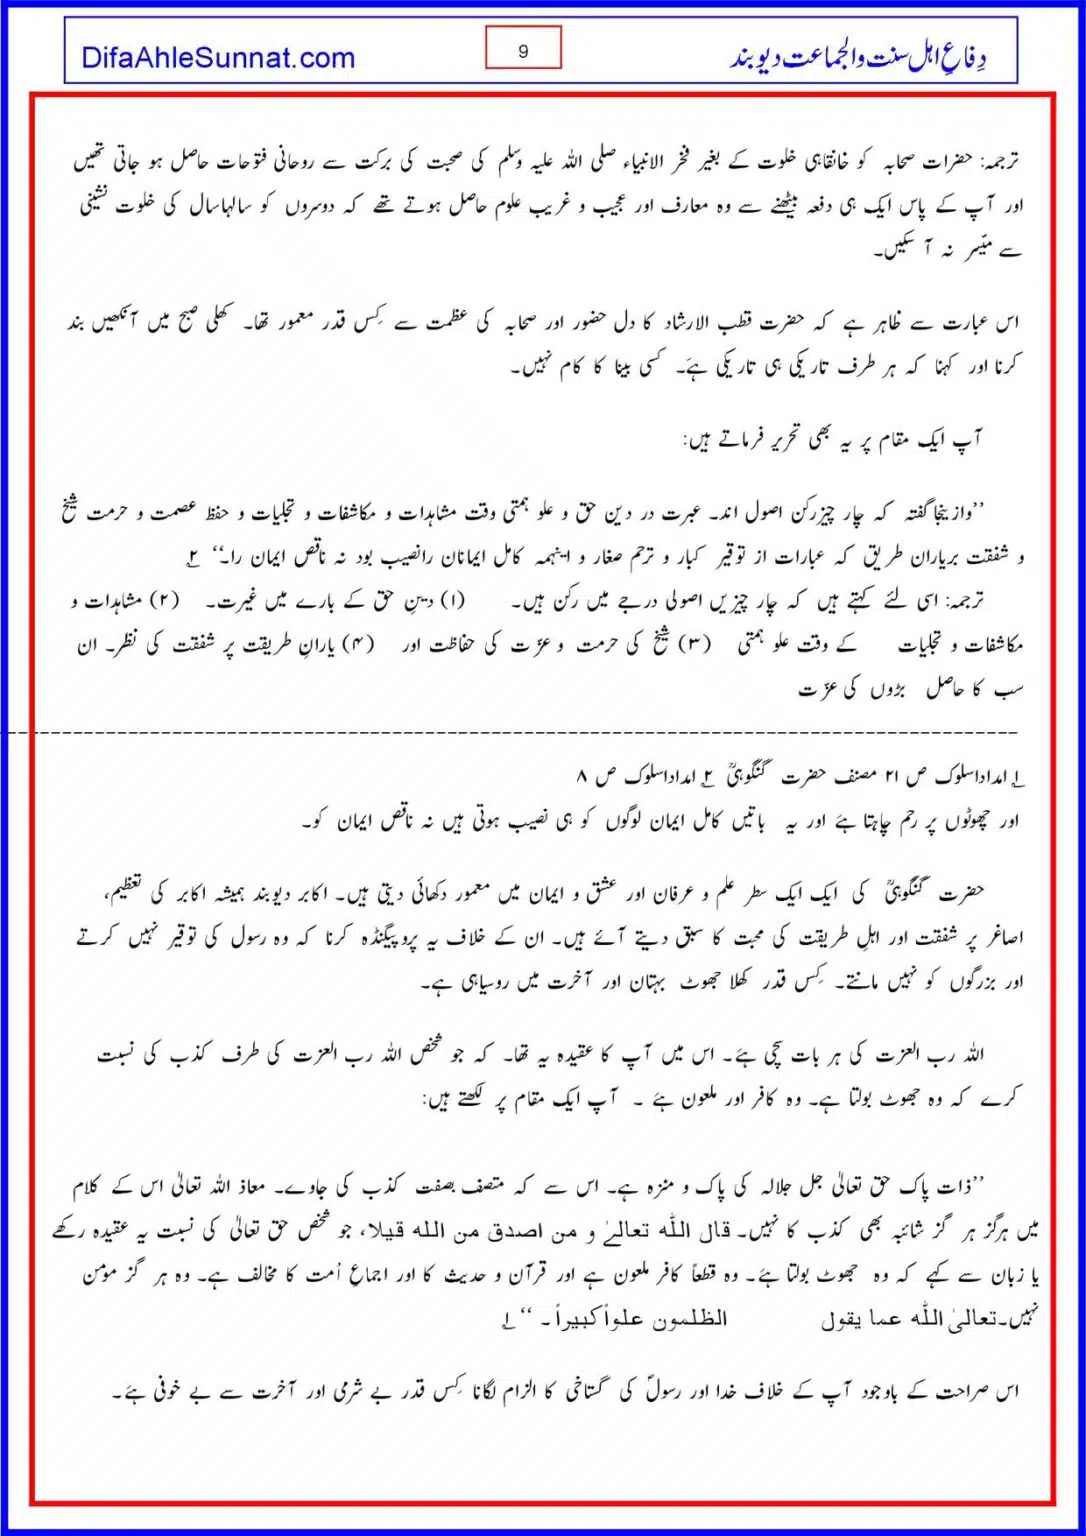 DifaAhleSunnat.com
9
دِفاعِ اہل سنت والجماعت دیوبند
ترجمہ: حضرات صحابہ کو خانقاہی خلوت کے بغیر فخر الانبیاء صلی اللہ علیہ وسلم کی صحبت کی برکت سے روحانی فتوحات حاصل ہو جاتی تھیں
اور آپ کے پاس ایک ہی دفعہ بیٹھنے سے وہ معارف اور عجیب و غریب علوم حاصل ہوتے تھے کہ دوسروں کو سالہاسال کی خلوت نشینی
سے میّسر نہ آ سکیں۔
اس عبارت سے ظاہر ہے کہ حضرت قطب الارشاد کا دل حضور اور صحابہ کی عظمت سے کِس قدر معمور تھا۔ کھلی صبح میں آنکھیں بند
کرنا اور کہنا کہ ہر طرف تاریکی ہی تاریکی ہےَ۔ کسی بینا کا کام نہیں۔
آپ ایک مقام پر یہ بھی تحریر فرماتے ہیں:
’’وازینجا گفتہ کہ چار چیزرکن اصول اند۔ عبرت در دین حق و علو ہمتی وقت مشاہدات و مکاشفات و تجلیات و حفظ عصمت و حرمت شیخ
و شفقت بریاران طریق کہ عبارات از توقیر کبار و ترحم صغار و اینہمہ کامل ایمانان رانصیب بود نہ ناقص ایمان را۔‘‘ ۲؂
ترجمہ: اسی لئے کہتے ہیں کہ چار چیزیں اصولی درجے میں رکن ہیں۔ (۱) دینِ حق کے بارے میں غیرت۔ (۲) مشاہدات و
مکاشفات و تجلیات کے وقت علو ہمتی (۳) شیخ کی حرمت و عزّت کی حفاظت اور (۴) یارانِ طریقت پر شفقت کی نظر۔ ان
سب کا حاصل بڑوں کی عزّت
------------------------------------------------------------
۱؂ امداداسلوک ص ۲۱ مصنف حضرت گنگوہیؒ ۲؂ امداداسلوک ص ۸
اور چھوٹوں پر رحم چاہتا ہےَ اور یہ باتیں کامل ایمان لوگوں کو ہی نصیب ہوتی ہیں نہ ناقص ایمان کو۔
حضرت گنگوہیؒ کی ایک ایک سطر علم و عرفان اور عشق و ایمان میں معمور دکھائی دیتی ہیں۔ اکابر دیوبند ہمیشہ اکابر کی تعظیم،
اصاغر پر شفقت اور اہلِ طریقت کی محبت کا سبق دیتے آئے ہیں۔ ان کے خلاف یہ پروپیگنڈہ کرنا کہ وہ رسول کی توقیر نہیں کرتے
اور بزرگوں کو نہیں مانتے۔ کِس قدر کھلا جھوٹ بہتان اور آخرت میں روسیاہی ہے۔
اللہ رب العزت کی ہر بات سچی ہےَ۔ اس میں آپ کا عقیدہ یہ تھا۔ کہ جو شخص اللہ رب العزت کی طرف کذب کی نسبت
کرے کہ وہ جھوٹ بولتا ہے۔ وہ کافر اور ملعون ہےَ ۔ آپ ایک مقام پر لکھتے ہیں:
’’ذات پاک حق تعالیٰ جل جلالہ کی پاک و منزہ ہے۔ اس سے کہ متصف بصفت کذب کی جاوے۔ معاذ اللہ تعالیٰ اس کے کلام
میں ہرگز ہر گز شائبہ بھی کذب کا نہیں۔ قال اللّٰه تعالےٰ و من اصدق من الله قیلا، جو شخص حق تعالیٰ کی نسبت یہ عقیدہ رکھے
یا زبان سے کہے کہ وہ جھوٹ بولتا ہےَ۔ وہ قطعاً کافر ملعون ہے اور قرآن و حدیث کا اور اجماعِ اُمت کا مخالف ہے۔ وہ ہر گز مومن
نہیں۔تعالیٰ اللّٰه عما یقول الظلمون علواً کبیراً۔ ‘‘ ۱؂
اس صراحت کے باوجود آپ کے خلاف خدا اور رسولؐ کی گستاخی کا الزام لگانا کِس قدر بے شرمی اور آخرت سے بے خوفی ہےَ۔